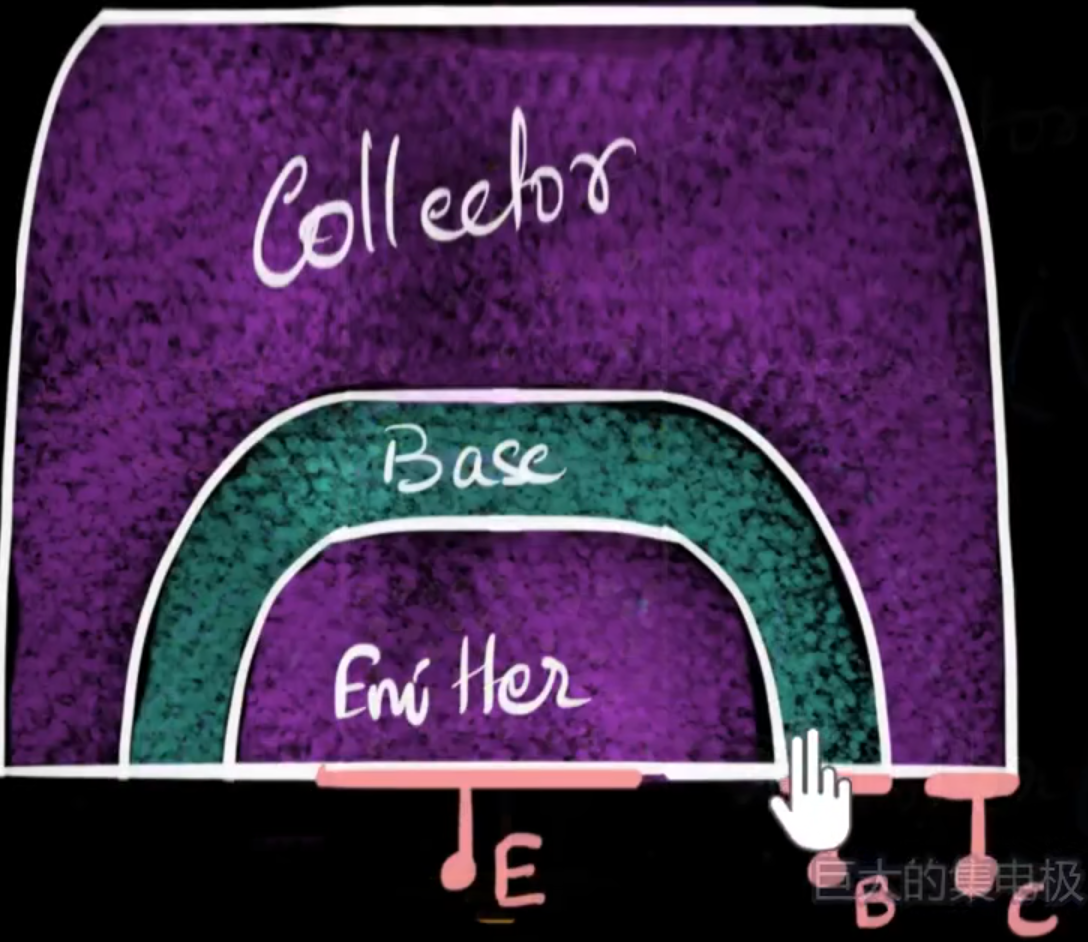 Collector
Base
Emitter
E
B
C
巨大的集电极